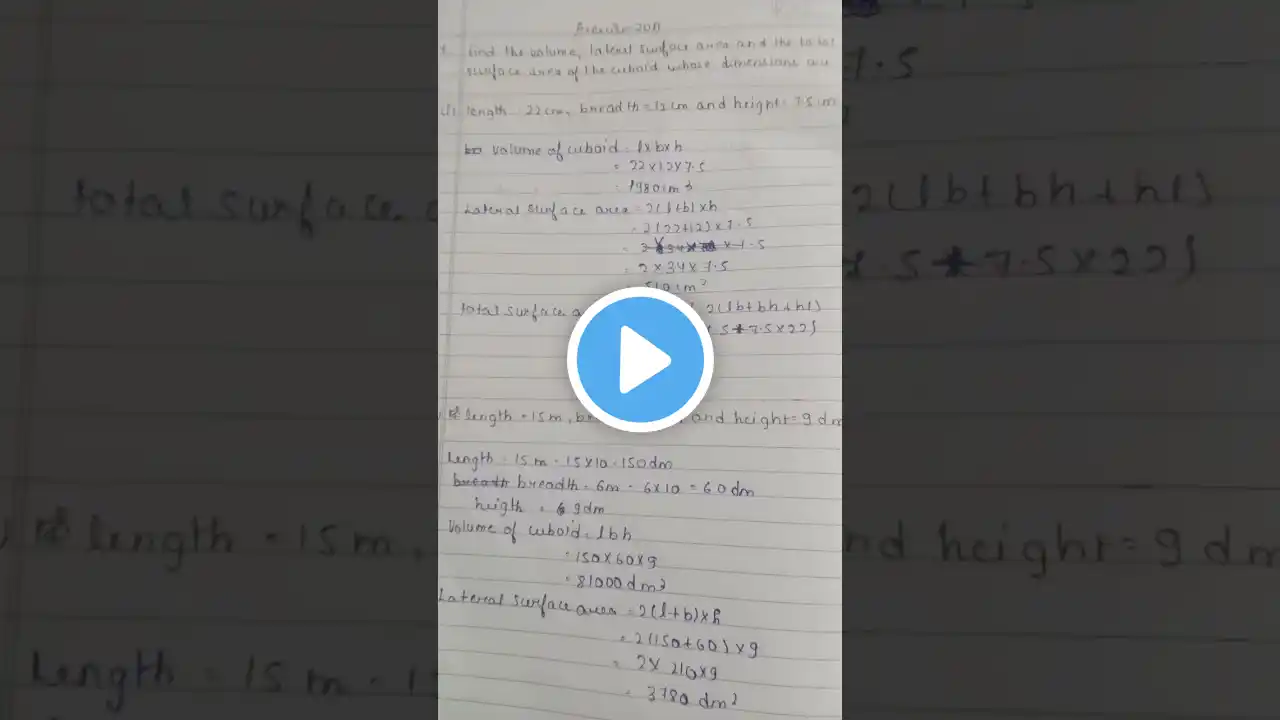 Exercise 20A
find the volume, lateral surface area and the total
surface area of the cuboid whose dimensions are
(i) length = 22cm, breadth = 12cm and height = 7.5cm
volume of cuboid = l×b×h
= 22×12×7.5
= 1980cm³
Lateral surface area = 2(l+b)×h
= 2(22+12)×7.5
× 7.5
= 2×34×7.5
= 510cm²
total surface 2(lb+bh+hl)
.5+7.5×22}
length = 15m, and height = 9dm
Length = 15m = 15×10 = 150dm
breadth = 6m = 6×10 = 60dm
heigth = 9dm
Volume of cuboid = lbh
= 150×60×9
= 81000dm³
Lateral surface area = 2(l+b)×h
= 2(150+60)×9
= 2×210×9
= 3780 dm²